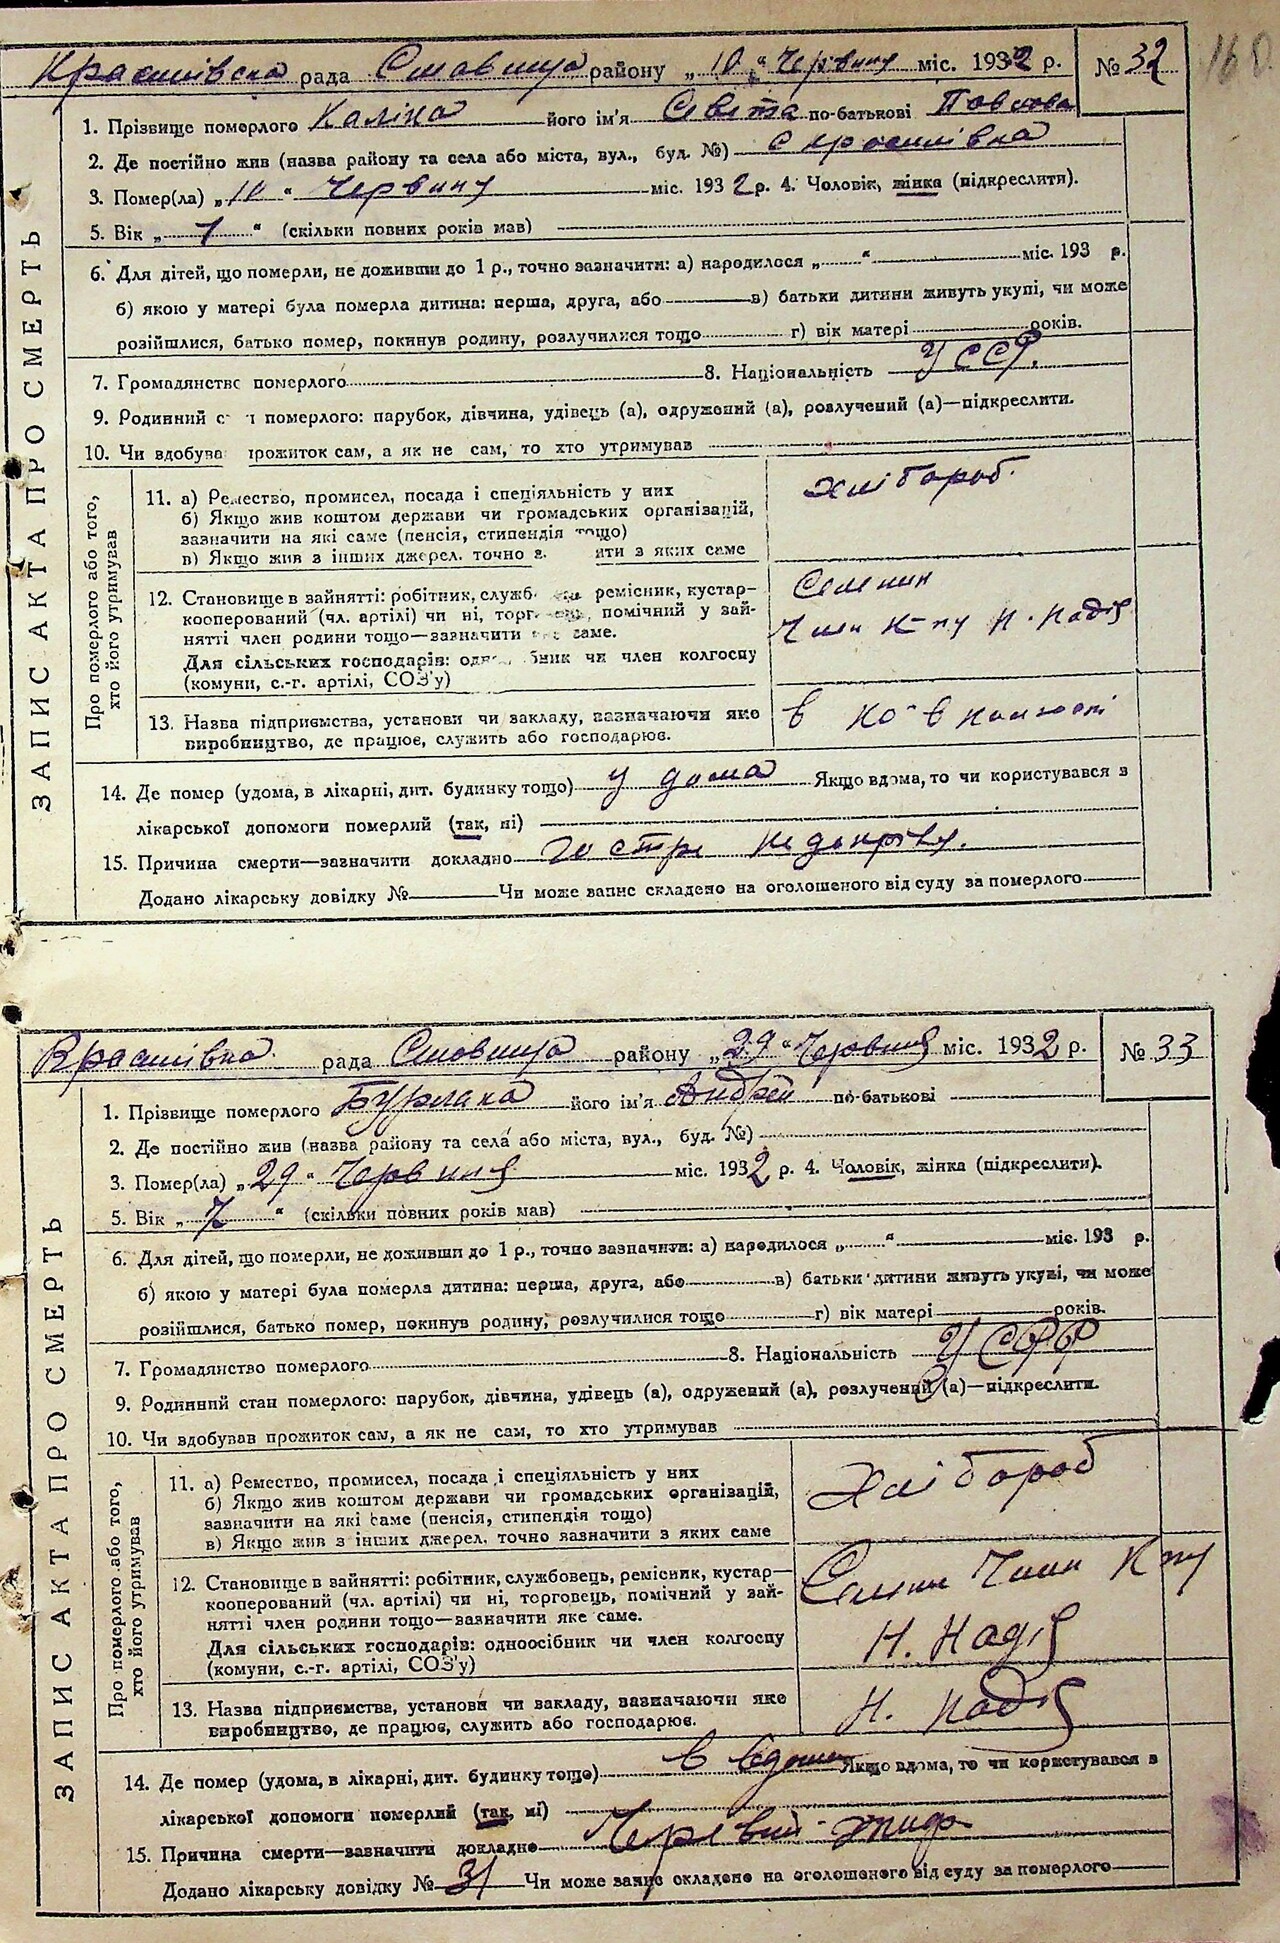 Красилівска рада Ставище району „10“ Червину міс. 1932 р. № 32
ЗАПИС АКТА ПРО СМЕРТЬ
1. Прізвище померлого Каліна його ім'я по-батькові Павлова
2. Де постійно жив (назва району та села або міста, вул., буд. №) с Красилівка
3. Помер(ла) „10“ Червину міс. 1932 р. 4. Чоловік, жінка (підкреслити).
5. Вік „1“ (скільки повних років мав)
6. Для дітей, що померли, не доживши до 1 р., точно зазначити: а) народилося „ “ міс. 193 р.
б) якою у матері була померла дитина: перша, друга, або в) батьки дитини живуть укупі, чи може
розійшлися, батько помер, покинув родину, розлучилися тощо г) вік матері років.
7. Громадянство померлого 8. Національність УССР.
9. Родинний с н померлого: парубок, дівчина, удівець (а), одружений (а), розлучений (а)—підкреслити.
10. Чи вдобува прожиток сам, а як не сам, то хто утримував
Про померлого або того,
хто його утримував
11. а) Ремество, промисел, посада і спеціяльність у них
б) Якщо жив коштом держави чи громадських організацій,
зазначити на які саме (пенсія, стипендія тощо)
в) Якщо жив з інших джерел, точно з ити з яких саме
Хлібороб.
12. Становище в зайнятті: робітник, служб ремісник, кустар—
кооперований (чл. артілі) чи ні, торг помічний у зай-
нятті член родини тощо—зазначити саме.
Для сільських господарів: одн бник чи член колгоспу
(комуни, с.-г. артілі, СОЗ'у)
Селянин
Член К-пу Н. Надія
13. Назва підприємства, установи чи закладу, зазначаючи яке
виробництво, де працює, служить або господарює.
в
14. Де помер (удома, в лікарні, дит. будинку тощо) у дома Якщо вдома, то чи користувався з
лікарської допомоги померлий (так, ні)
15. Причина смерти—зазначити докладно гостре недокріву.
Додано лікарську довідку № Чи може запис складено на оголошеного від суду за померлого
Красилівка рада Ставище району „29“ Червня міс. 1932 р. № 33
ЗАПИС АКТА ПРО СМЕРТЬ
1. Прізвище померлого Бурлака його ім'я Андрей по-батькові
2. Де постійно жив (назва району та села або міста, вул., буд. №)
3. Помер(ла) „29“ Червня міс. 1932 р. 4. Чоловік, жінка (підкреслити).
5. Вік „7“ (скільки повних років мав)
6. Для дітей, що померли, не доживши до 1 р., точно зазначити: а) народилося „ “ міс. 193 р.
б) якою у матері була померла дитина: перша, друга, або в) батьки дитини живуть укупі, чи може
розійшлися, батько помер, покинув родину, розлучилися тощо г) вік матері років.
7. Громадянство померлого 8. Національність УСРР
9. Родинний стан померлого: парубок, дівчина, удівець (а), одружений (а), розлучений (а)—підкреслити.
10. Чи вдобував прожиток сам, а як не сам, то хто утримував
Про померлого або того,
хто його утримував
11. а) Ремество, промисел, посада і спеціяльність у них
б) Якщо жив коштом держави чи громадських організацій,
зазначити на які саме (пенсія, стипендія тощо)
в) Якщо жив з інших джерел, точно зазначити з яких саме
Хлібороб
12. Становище в зайнятті: робітник, службовець, ремісник, кустар—
кооперований (чл. артілі) чи ні, торговець, помічний у зай-
нятті член родини тощо—зазначити яке саме.
Для сільських господарів: одноосібник чи член колгоспу
(комуни, с.-г. артілі, СОЗ'у)
Селянин Член К-пу
Н. Надія
13. Назва підприємства, установи чи закладу, зазначаючи яке
виробництво, де працює, служить або господарює.
Н. Надія
14. Де помер (удома, в лікарні, дит. будинку тощо) в вдома Якщо вдома, то чи користувався з
лікарської допомоги померлий (так, ні)
15. Причина смерти—зазначити докладно
Додано лікарську довідку № 31 Чи може запис складено на оголошеного від суду за померлого